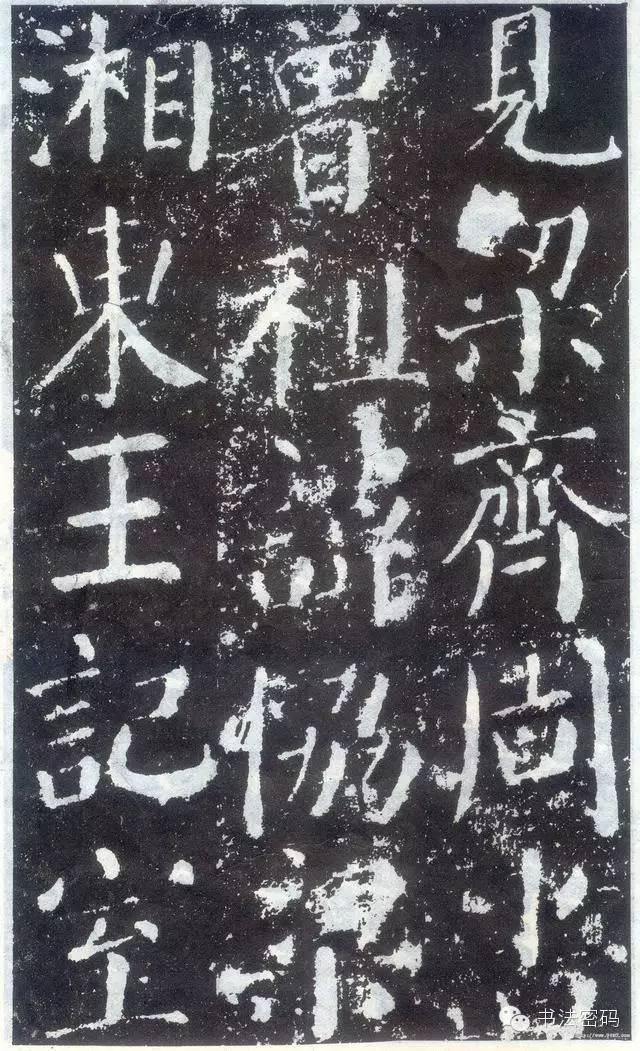 見梁齊周
曾祖諱恊梁
湘東王記室
书法密码